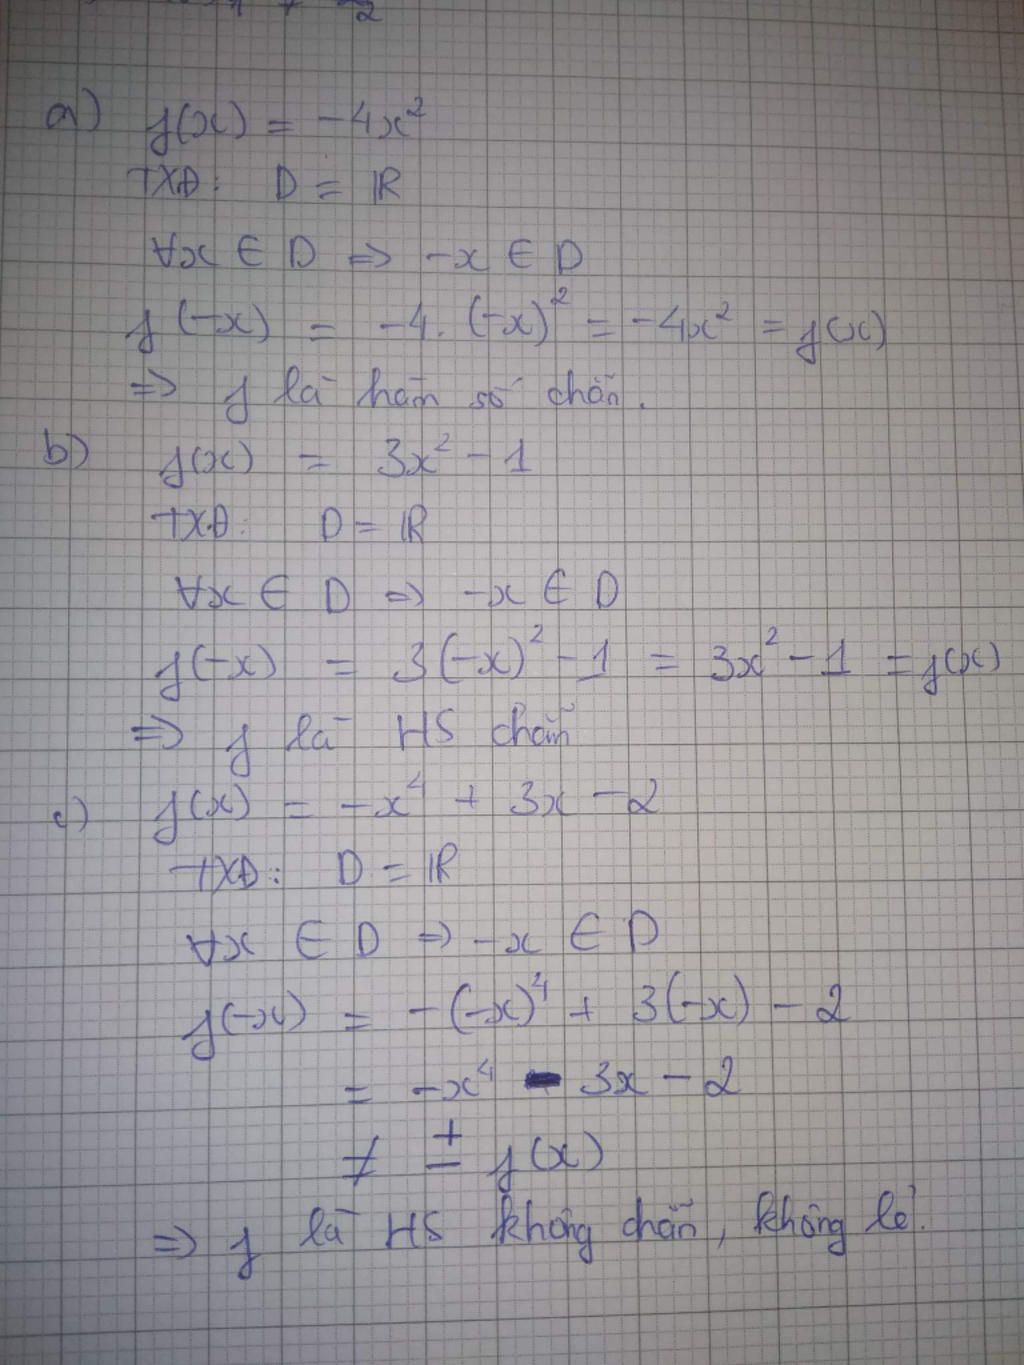 a) f(x) = -4x²
TXĐ: D = ℝ
∀x ∈ D ⇒ -x ∈ D
f(-x) = -4.(-x)² = -4x² = f(x)
⇒ f là hàm số chẵn.
b) f(x) = 3x² - 1
TXĐ: D = ℝ
∀x ∈ D ⇒ -x ∈ D
f(-x) = 3(-x)² - 1 = 3x² - 1 = f(x)
⇒ f là HS chẵn
c) f(x) = -x⁴ + 3x - 2
TXĐ: D = ℝ
∀x ∈ D ⇒ -x ∈ D
f(-x) = -(-x)⁴ + 3(-x) - 2
= -x⁴ - 3x - 2
≠ ± f(x)
⇒ f là HS không chẵn, không lẻ.